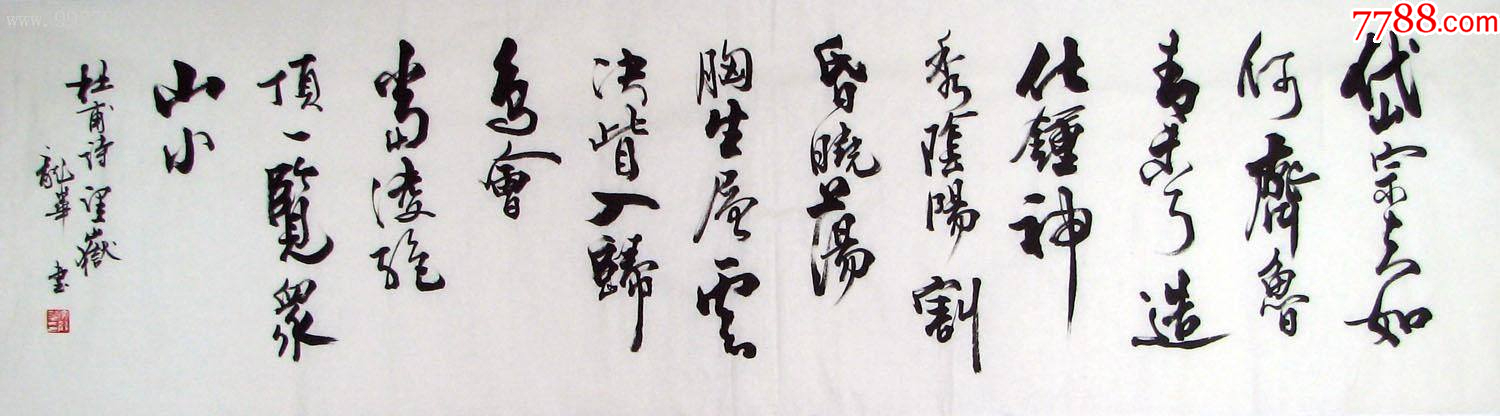 7788.com
岱宗夫如
何齊魯
青未了造
化鍾神
秀陰陽割
昏曉蕩
胸生層雲
決眥入歸
鳥會
當凌絕
頂一覽眾
山小
杜甫詩望嶽
龍華書